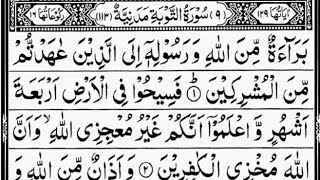 اٰیَاتُهَا ۱۲۹ (۹) سُوْرَةُ التَّوْبَةِ مَدَنِيَّةٌ (۱۱۳) رُكُوْعَاتُهَا ۱۶
بَرَآءَةٌ مِّنَ اللّٰهِ وَ رَسُوْلِهٖۤ اِلَى الَّذِیْنَ عٰهَدْتُّمْ
مِّنَ الْمُشْرِكِیْنَ ۱ فَسِیْحُوْا فِی الْاَرْضِ اَرْبَعَةَ
اَشْهُرٍ وَّ اعْلَمُوْۤا اَنَّكُمْ غَیْرُ مُعْجِزِی اللّٰهِ ۙ وَ اَنَّ
اللّٰهَ مُخْزِی الْكٰفِرِیْنَ ۲ وَ اَذَانٌ مِّنَ اللّٰهِ وَ